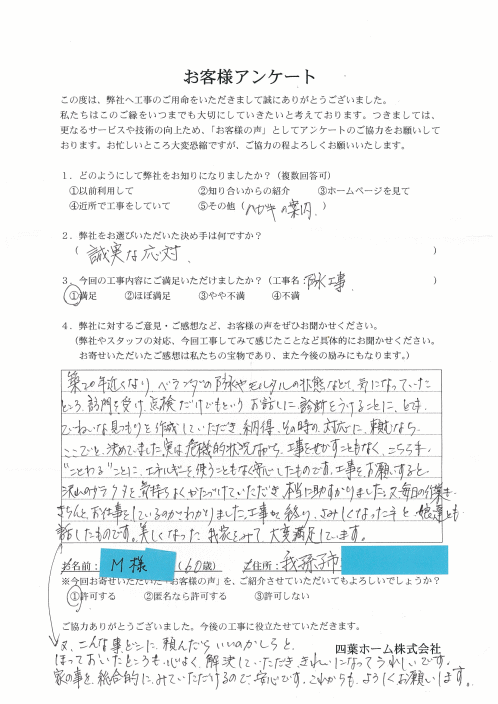 お客様アンケート
この度は、弊社へ工事のご用命をいただきまして誠にありがとうございました。
私たちはこのご縁をいつまでも大切にしていきたいと考えております。つきましては、
更なるサービスや技術の向上ため、「お客様の声」としてアンケートのご協力をお願いして
おります。お忙しいところ大変恐縮ですが、ご協力の程よろしくお願いいたします。
1．どのようにして弊社をお知りになりましたか？（複数回答可）
①以前利用して ②知り合いからの紹介 ③ホームページを見て
④近所で工事をしていて ⑤その他（ハガキの案内．）
2．弊社をお選びいただいた決め手は何ですか？
（誠実な応対．）
3．今回の工事内容にご満足いただけましたか？（工事名：防水工事．）
①満足 ②ほぼ満足 ③やや不満 ④不満
4．弊社に対するご意見・ご感想など、お客様の声をぜひお聞かせください。
（弊社やスタッフの対応、今回工事してみて感じたことなど具体的にお聞かせください。
お寄せいただいたご感想は私たちの宝物であり、また今後の励みにもなります。）
築20年近くなり、ベランダの防水やモルタルの状態などで、気になっていた
ところ、訪問を受け、点検だけでもというお話しに、診断をうけることに、とても
ていねいな見つもりを作成していただき、納得、その時の対応に、頼むなら
ここでと、決めてました。実は危機的状況ながら、工事をせかすこともなく、こちらも
"ことわる"ことに、エネルギーを使うこともなく安心したものです。工事をお願いすると
沢山のガラクタを気持ちよくかたづけていただき、本当に助すかりました。又、毎日の作業も
きちんと、お仕事をしているのがわかりました。工事が終り、さみしくなったネと、娘達とも
話したものです。美しくなった我家をみて、大変満足しています。
お名前：M様（60歳） ご住所：我孫子市
※今回お寄せいただいた「お客様の声」を、ご紹介させていただいてもよろしいでしょうか？
①許可する ②匿名なら許可する ③許可しない
ご協力ありがとうございました。今後の工事に役立たせていただきます。
四葉ホーム株式会社
又、こんな事どこに、頼んだらいいのかしらと、
ほっておいたところも、心よく、解決していただき、きれいになってうれしいです。
家の事を、総合的に、みていただけるので、安心です。これからも、よろしくお願いします。